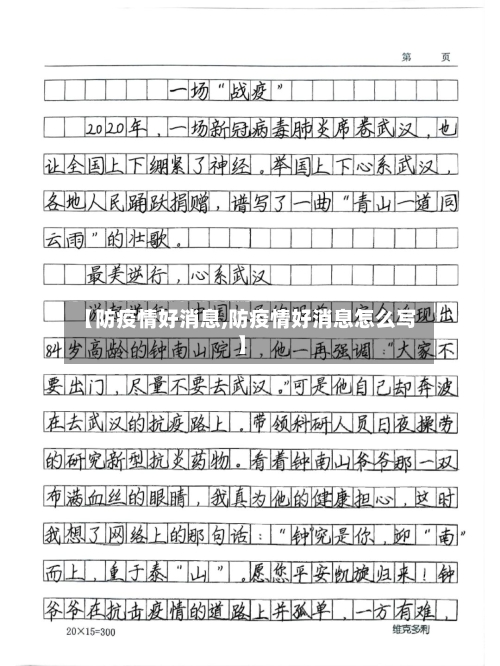 第 页
一场“战疫”
2020年，一场新冠病毒肺炎席卷武汉，也
让全国上下绷紧了神经。举国上下心系武汉，
各地人民踊跃捐赠，谱写了一曲“青山一道同
云雨”的壮歌。
最美逆行，心系武汉
现出
【防疫情好消息,防疫情好消息怎么写
】
84岁高龄的钟南山院士，他一再强调：“大家不
要出门，尽量不要去武汉。”可是他自己却奔波
在去武汉的抗疫路上。带领科研人员日夜操劳
的研究新型抗炎药物。看着钟南山爷爷那一双
布满血丝的眼睛，我真为他的健康担心，这时
我想了网络上的那句话：“钟究是你，迎“南”
而上，重于泰“山”。愿您平安凯旋归来！钟
爷爷在抗击疫情的道路上并孤单，一方有难，
20×15=300
维克多利